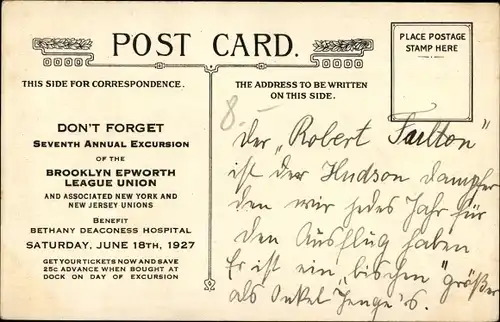 POST CARD.
PLACE POSTAGE
STAMP HERE
THIS SIDE FOR CORRESPONDENCE.
THE ADDRESS TO BE WRITTEN
ON THIS SIDE.
DON'T FORGET
SEVENTH ANNUAL EXCURSION
OF THE
BROOKLYN EPWORTH
LEAGUE UNION
AND ASSOCIATED NEW YORK AND
NEW JERSEY UNIONS
BENEFIT
BETHANY DEACONESS HOSPITAL
SATURDAY, JUNE 18TH, 1927
GET YOUR TICKETS NOW AND SAVE
25c ADVANCE WHEN BOUGHT AT
DOCK ON DAY OF EXCURSION
8.-
Der „Robert Fulton"
ist der Hudson dampfer
den wir jedes Jahr für
den Ausflug haben
Er ist ein „bischen" größer
als Onkel